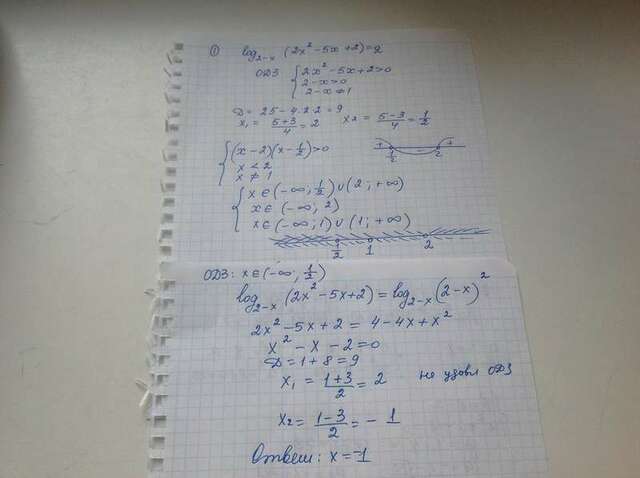 ① log₂₋ₓ (2x² - 5x + 2) = 2
ОДЗ { 2x² - 5x + 2 > 0
2 - x > 0
2 - x ≠ 1
D = 25 - 4·2·2 = 9
x₁ = (5+3)/4 = 2 x₂ = (5-3)/4 = 1/2
{ (x - 2)(x - 1/2) > 0
x < 2
x ≠ 1
+ - + 1/2 2
{ x ∈ (-∞; 1/2) ∪ (2; +∞)
x ∈ (-∞; 2)
x ∈ (-∞; 1) ∪ (1; +∞)
1/2 1 2
ОДЗ: x ∈ (-∞; 1/2)
log₂₋ₓ (2x² - 5x + 2) = log₂₋ₓ (2 - x)²
2x² - 5x + 2 = 4 - 4x + x²
x² - x - 2 = 0
D = 1 + 8 = 9
x₁ = (1+3)/2 = 2 не удовл ОДЗ
x₂ = (1-3)/2 = -1
Ответ: x = -1